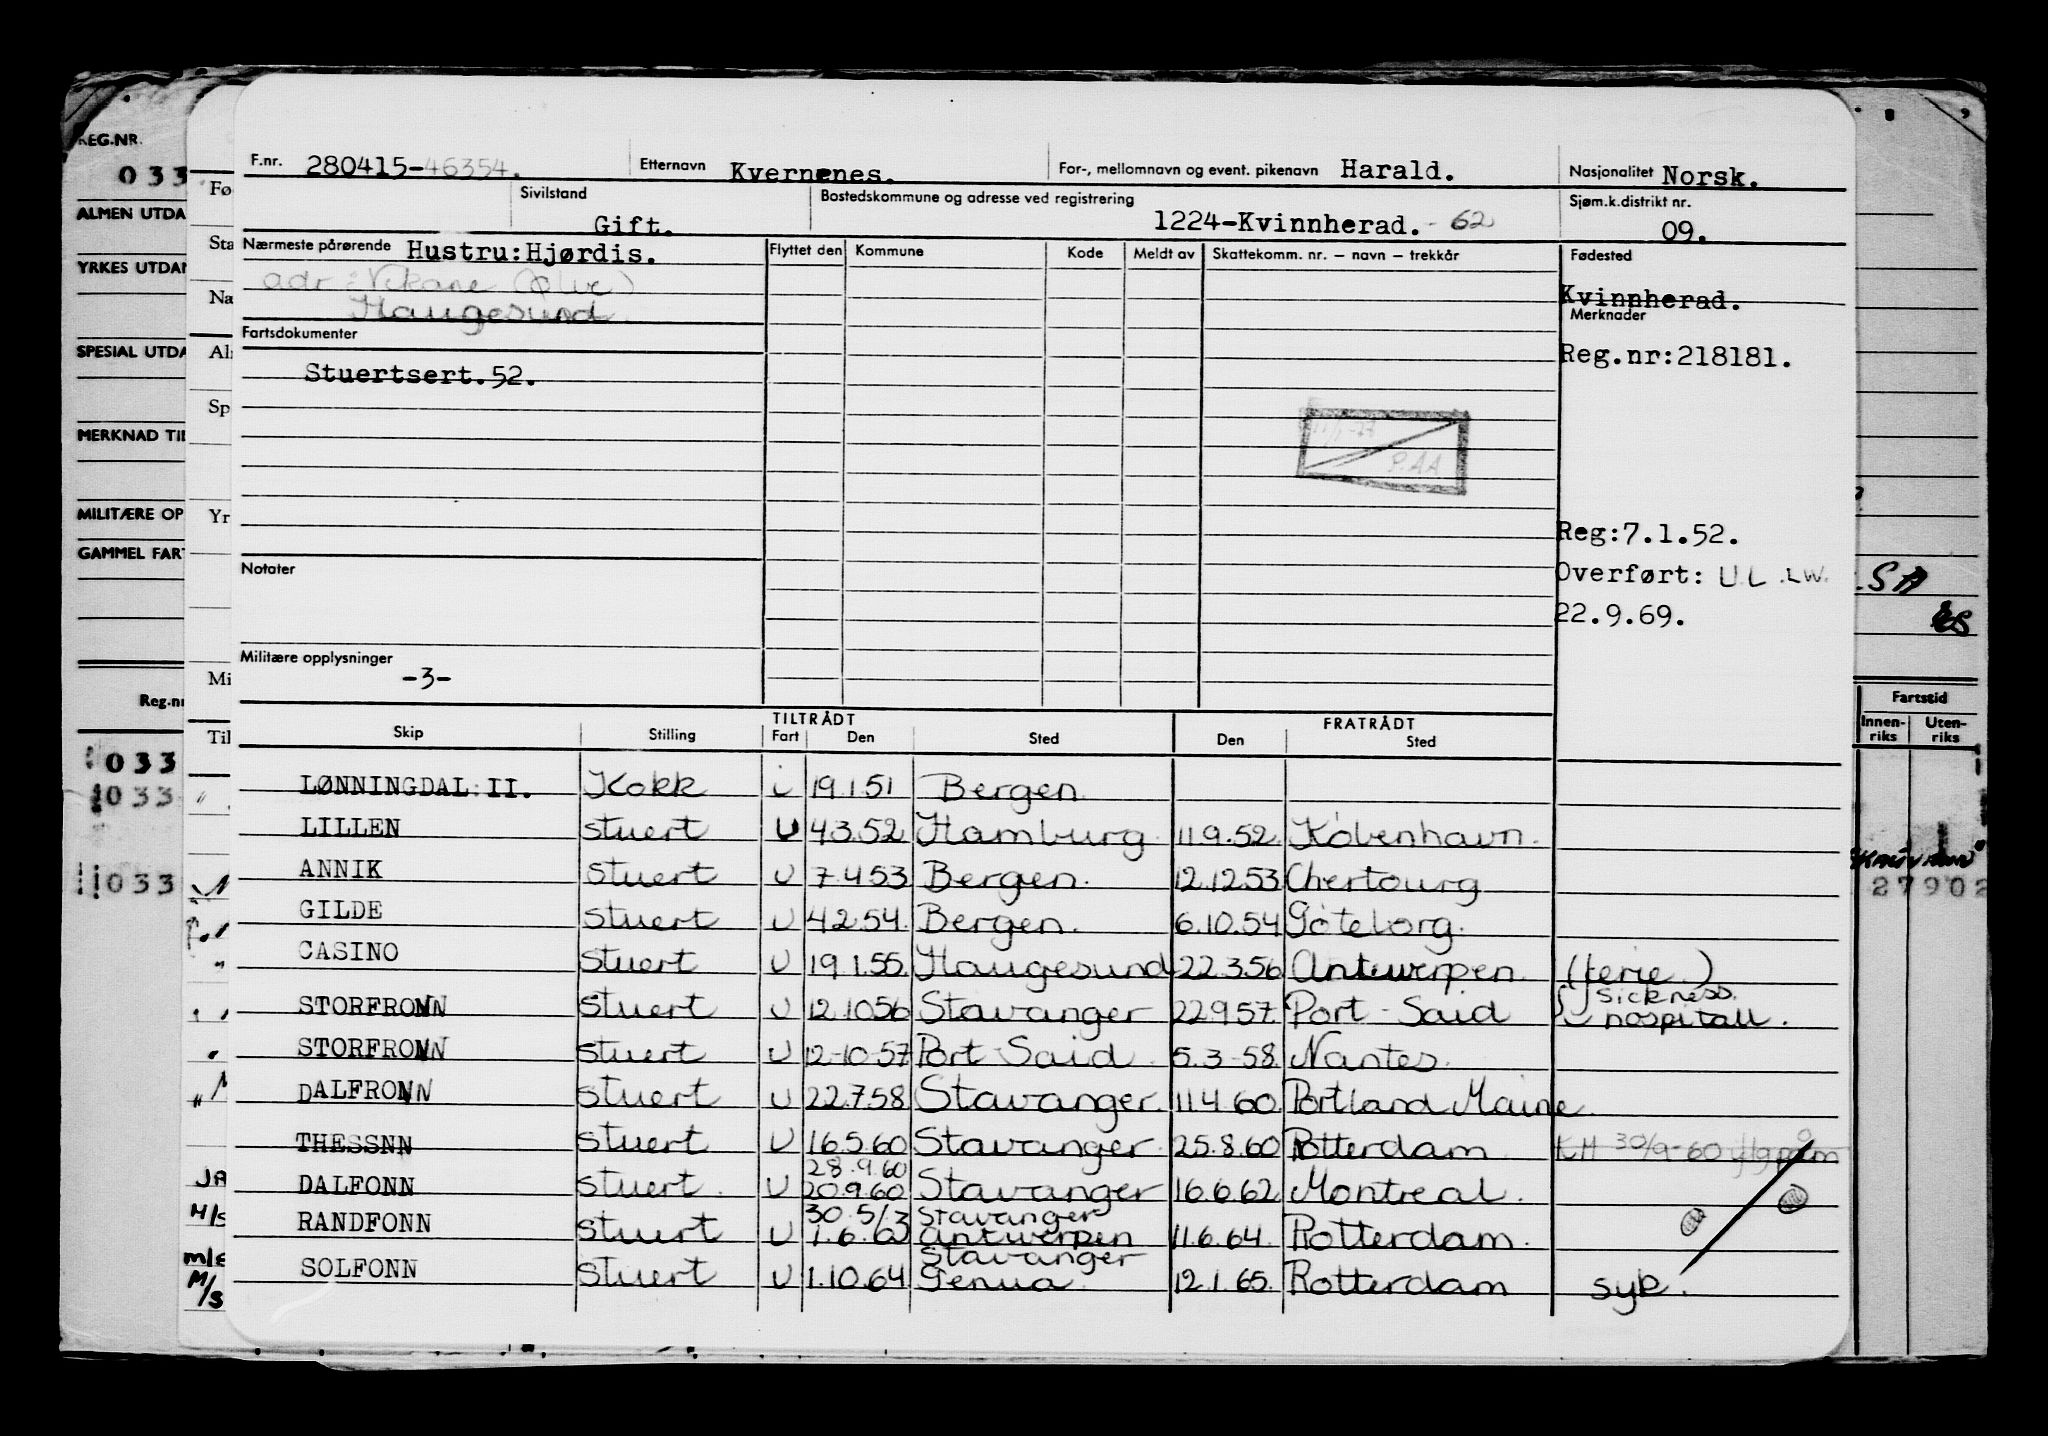 REG.NR.
033
ALMEN UTDA
YRKES UTDAN
SPESIAL UTDA
MERKNAD TIL
MILITÆRE OP
GAMMEL FART
Reg.nr
033
033
033
Fø
Sta
Na
Al
Sp
Yr
Mi
Til
F.nr. 280415-46354. Etternavn Kvernenes. For-, mellomnavn og event. pikenavn Harald. Nasjonalitet Norsk.
Sivilstand Gift. Bostedskommune og adresse ved registrering 1224-Kvinnherad. - 62 Sjøm.k.distrikt nr. 09.
Nærmeste pårørende Hustru:Hjørdis. Flyttet den Kommune Kode Meldt av Skattekomm. nr. – navn – trekkår Fødested
adr: Vikane (Ølve)
Haugesund
Kvinnherad.
Fartsdokumenter Merknader
Stuertsert.52. Reg.nr:218181.
P.AA
Reg:7.1.52.
Notater Overført: U.L .LW.
22.9.69.
Militære opplysninger
-3-
TILTRÅDT FRATRÅDT
Skip Stilling Fart Den Sted Den Sted
LØNNINGDAL II. Kokk i 19.1.51 Bergen
LILLEN stuert U 4.3.52 Hamburg 11.9.52 København.
ANNIK stuert U 7.4.53 Bergen. 12.12.53 Chertourg
GILDE stuert U 4.2.54. Bergen. 6.10.54 Göteborg.
CASINO stuert U 19.1.55. Haugesund 22.3.56 Antwerpen (ferie)
STORFRONN stuert U 12.10.56 Stavanger 22.9.57. Port-Said sickness
hospitall.
STORFRONN stuert U 12-10-57 Port-Said. 5.3-58. Nantes.
DALFRONN stuert U 22.7.58 Stavanger. 11.4.60 Portland Maine.
THESSNN stuert U 16.5.60 Stavanger. 25.8.60 Rotterdam KH 30/9-60
28.9.60
DALFONN stuert. U 20.9.60 Stavanger 16.6.62 Montreal.
30.5/3 Stavanger
RANDFONN stuert U 1.6.63 Antwerpen 11.6.64. Rotterdam.
Stavanger
SOLFONN stuert U 1.10.64 Genua. 12.1.65. Rotterdam syk.
JA
M/S
M/S
.SA
Fartstid
Innen-
riks
Uten-
riks
27902